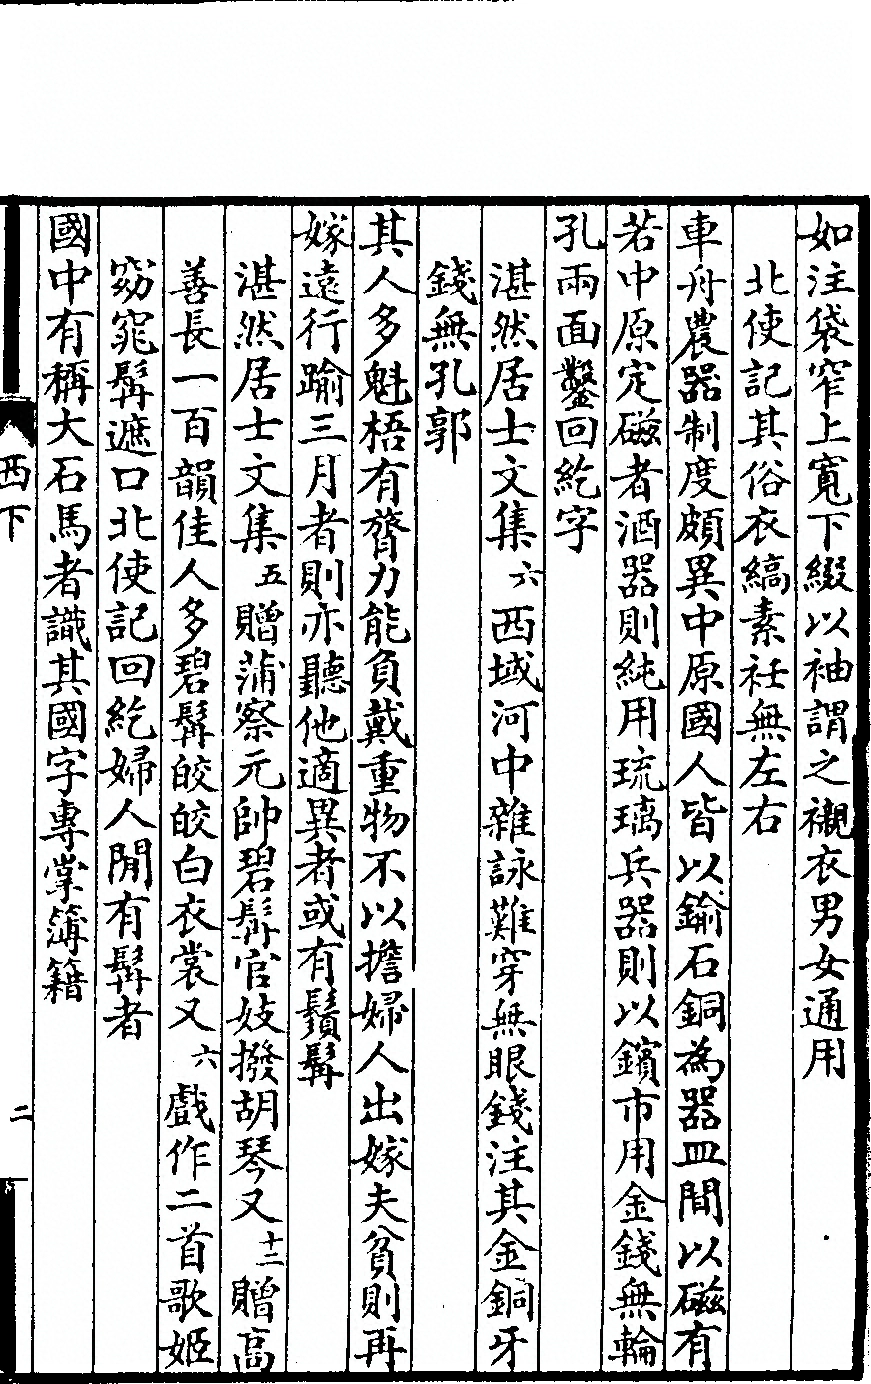 如注袋窄上寬下綴以袖謂之襯衣男女通用
北使記其俗衣縞素衽無左右
車舟農器制度頗異中原國人皆以鍮石銅為器皿間以磁有
若中原定磁者酒器則純用琉璃兵器則以鑌市用金錢無輪
孔兩面鑿回紇字
湛然居士文集六西域河中雜詠難穿無眼錢注其金銅牙
錢無孔郭
其人多魁梧有膂力能負戴重物不以擔婦人出嫁夫貧則再
嫁遠行踰三月者則亦聽他適異者或有鬚髯
湛然居士文集五贈蒲察元帥碧髯官妓撥胡琴又十二贈高
善長一百韻佳人多碧髯皎皎白衣裳又六戲作二首歌姬
窈窕髯遮口北使記回紇婦人閒有髯者
國中有稱大石馬者識其國字專掌簿籍
西下
二